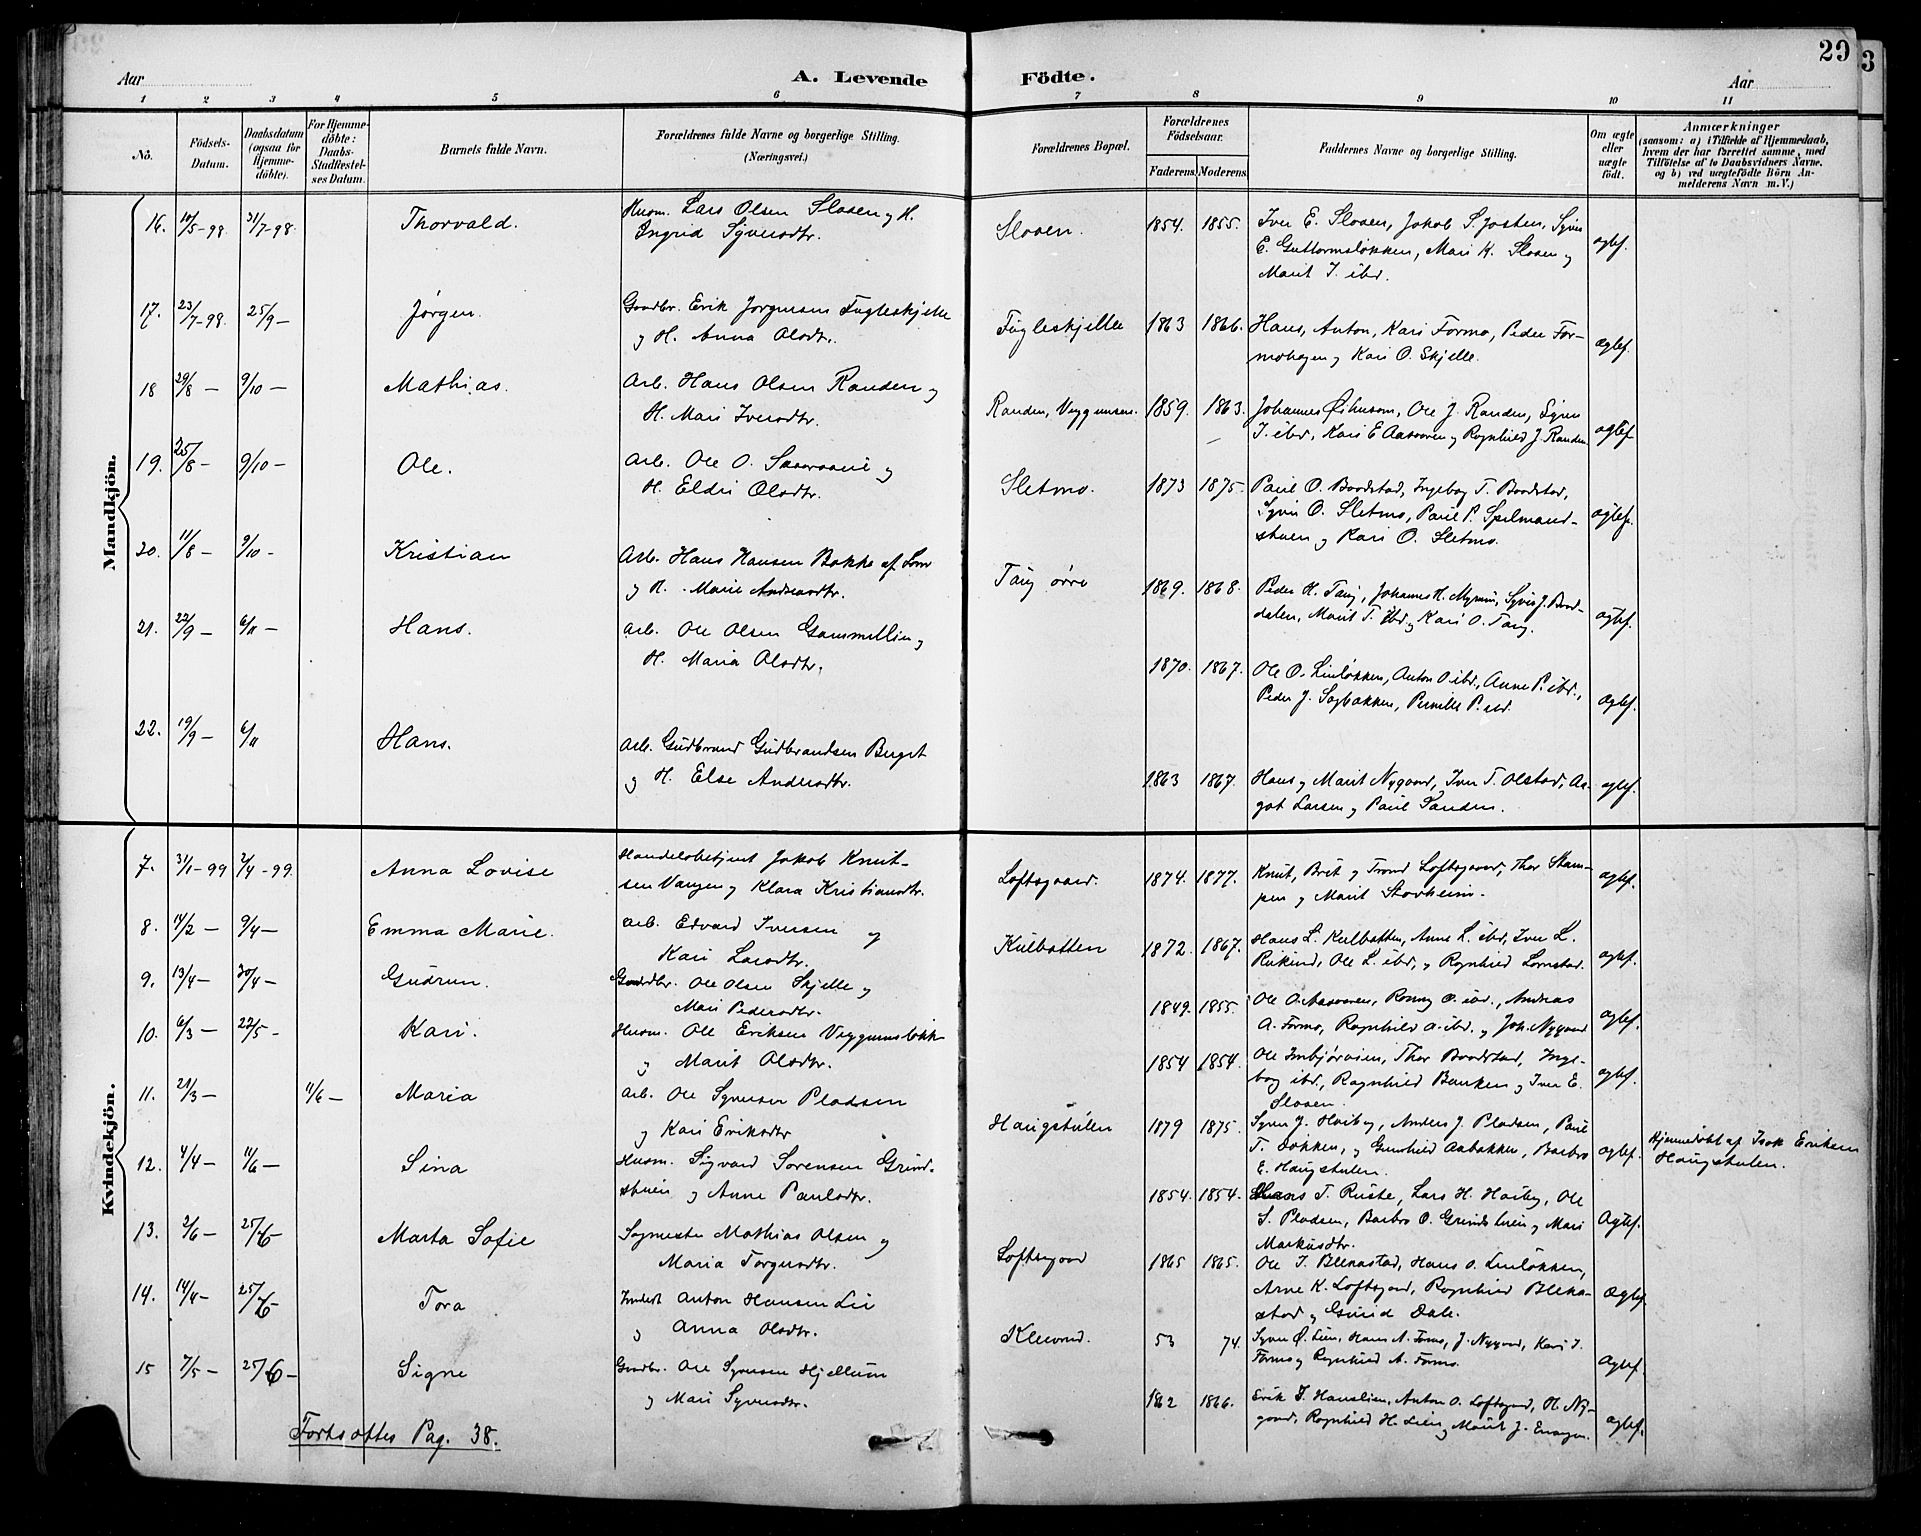 29
3
Aar
A. Levende
Födte.
Aar
1 2 3 4 5 6 7 8 9 10 11
No.
Födsels-
Datum.
Daabsdatum
(ogsaa for
Hjemme-
döbte).
For Hjemme-
döbte:
Daabs-
Stadfæstel-
ses Datum.
Barnets fulde Navn.
Forældrenes fulde Navne og borgerlige Stilling.
(Næringsvei.)
Forældrenes Bopæl.
Forældrenes
Födselsaar.
Faderens.
Moderens.
Faddernes Navne og borgerlige Stilling.
Om ægte
eller
uægte
födt.
Anmærkninger
(saasom: a) i Tilfælde af Hjemmedaab,
hvem der har forrettet samme, med
Tilföielse af to Daabsvidners Navne,
og b) ved uægtefödte Börn An-
melderens Navn m. V.)
Mandkjön.
16. 10/5-98 31/7-98. Thorvald. Husm. Lars Olsen Sloaen og H.
Ingrid Syversdtr. Sloaen. 1854. 1855. Iver E. Sloaen, Jakob S. Josten, Syver
E. Guttormsløkken, Mari K. Sloaen og
Marit I. ibd. ægtef.
17. 23/7-98. 25/9- Jørgen. Gaardbr. Erik Jørgensen Fugleskjelle
og H. Anna Olsdtr. Fugleskjelle 1863 1866. Hans, Anton, Kari Formo, Peder For-
mohagen og Kari O. Skjelle. ægtef.
18 29/8- 9/10- Mathias. Arb. Hans Olsen Randen og
H. Mari Iversdtr. Randen, Veggumsen. 1859. 1863. Johannes Øihusom, Ole J. Randen, Syver
I. ibd, Kari E Aasaaren og Ragnhild J. Randen ægtef.
19. 25/8- 9/10- Ole. Arb. Ole O. og
H. Eldri Olsdtr. Sletmo. 1873 1875. Paul O. Baadstad, Ingebog T. Baadstad,
Syver O. Sletmo, Paul P. Spelmand-
stuen og Kari O. Sletmo. ægtef.
20. 11/8- 9/10- Kristian Arb. Hans Hansen Bakke af Lom
og H. Marie Andersdtr. Taug øvre 1869. 1868. Peder H. Taug, Johannes H. Myrum, Syver J. Baad-
dalen, Marit T. ibd og Kari O. Taug. ægtef.
21. 22/9- 6/11- Hans. Arb. Ole Olsen Gammellien og
H. Maria Olsdtr. 1870. 1867. Ole O. Linløkken, Anton O ibd., Anne P. ibd.,
Peder J. Sagbakken, Pernille P. ibd. ægtef.
22. 19/9- 6/11 Hans. Arb. Gudbrand Gudbrandsen Berget
og H. Else Andersdtr. 1863 1867. Hans og Marit Nygaard, Iver T. Olstad, Aa-
got Larsen og Paul Sanden. ægtef.
Kvindekjön.
7. 31/1-99 2/4-99. Anna Lovise Handelsbetjent Jakob Knut-
sen Vangen og Klara Kristiansdtr. Loftsgaard. 1874. 1877. Knut, Brit og Trond Loftsgaard, Thor Stam-
pen og Marit Storheim. ægtef.
8. 14/2- 9/4- Emma Marie. Arb. Edvard Iversen og
Kari Larsdtr. Kulbotten 1872. 1867. Hans L. Kulbotten, Anne L. ibd, Iver L.
Ole L. ibd, og Ragnhild Lomstad. ægtef.
9. 13/4- 30/4- Gudrun. Gaardbr. Ole Olsen Skjelle og
Mari Pedersdtr. 1849. 1855. Ole O. Aasaaren, Ronny O. ibd., Andreas
A. Formo, Ragnhild A. ibd. og Joh. Nygaard ægtef.
10. 6/3- 22/5- Kari. Husm. Ole Eriksen Veggumsløkk-
og Marit Olsdtr. 1854 1854. Ole Imbjørvien, Thor Baadstad, Inge-
bog ibd., Ragnhild Banken og Iver E.
Sloaen. ægtef.
11. 21/3- 11/6- Maria Arb. Ole Syversen Pladsen
og Kari Eriksdtr Haugstulen 1879 1875. Syver J. Haiby, Anders J. Pladsen, Paul
T. Løkken, og Gunhild Aabakken, Barbro
E. Haugstulen. ægtef. Hjemmedøbt af Isak Eriksen
Haugstulen.
12. 4/4- 11/6- Sina Husm. Sigvard Sørensen Grind-
stuen og Anne Paulsdtr. 1854. 1854. Hans T. Ruste, Lars H. Haiby, Ole
S. Pladsen, Barbro O. Grindstuen og Mari
Markusdtr. ægtef.
13. 2/6- 25/6- Marta Sofie Sogneste Mathias Olsen og
Maria Torgersdtr. Loftsgaard 1865 1865. Ole I. Blekastad, Hans O. Linløkken,
Arne K. Loftsgaard, Ragnhild Bleka-
stad og Guri Dale. ægtef.
14. 14/4- 25/6- Tora Inderst Anton Hansen Lie
og Anna Olsdtr. Kleivrud. 53 74. Syver Ø. Lien, Hans A. Formo, J. Nygaard, Kari I.
Formo og Ragnhild A. Formo. ægtef.
15 7/5- 25/6- Signe Gaardbr. Ole Syversen Hjellum
og Mari Syversdtr. 1862 1866. Erik I. Hauslien, Anton O. Loftsgard, H. Ny-
gaard, Ragnhild H. Lien og Marit J. ægtef.
Fortsættes Pag. 38.